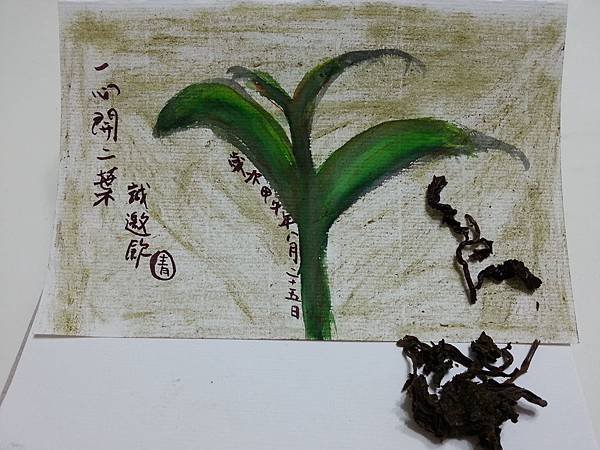 一心開二葉
誠邀飲
青
甲午年八月二十五日